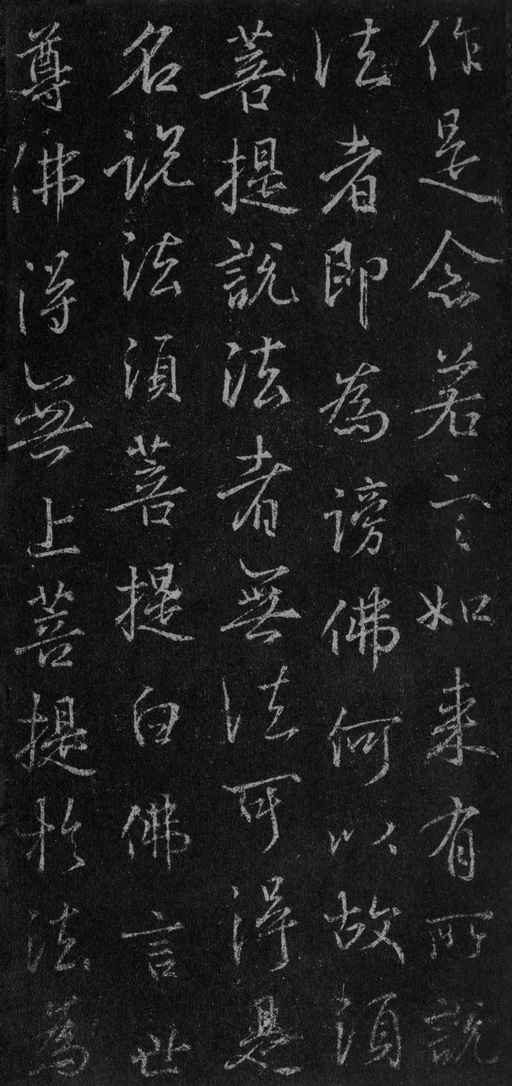 作是念若言如来有所說
法者即為謗佛何以故須
菩提說法者無法可得是
名説法須菩提白佛言世
尊佛得無上菩提於法為